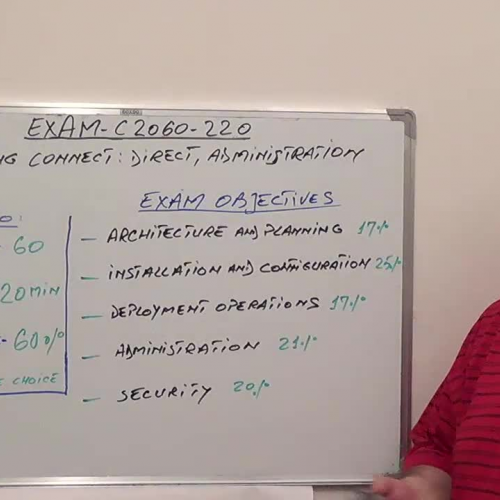 EXAM-C2060-220
NG CONNECT: DIRECT, ADMINISTRATION
EXAM OBJECTIVES
O:
60
20 MIN
60%
CHOICE
— ARCHITECTURE AND PLANNING 17%
— INSTALLATION AND CONFIGURATION 25%
— DEPLOYMENT OPERATIONS 17%
— ADMINISTRATION 21%
— SECURITY 20%